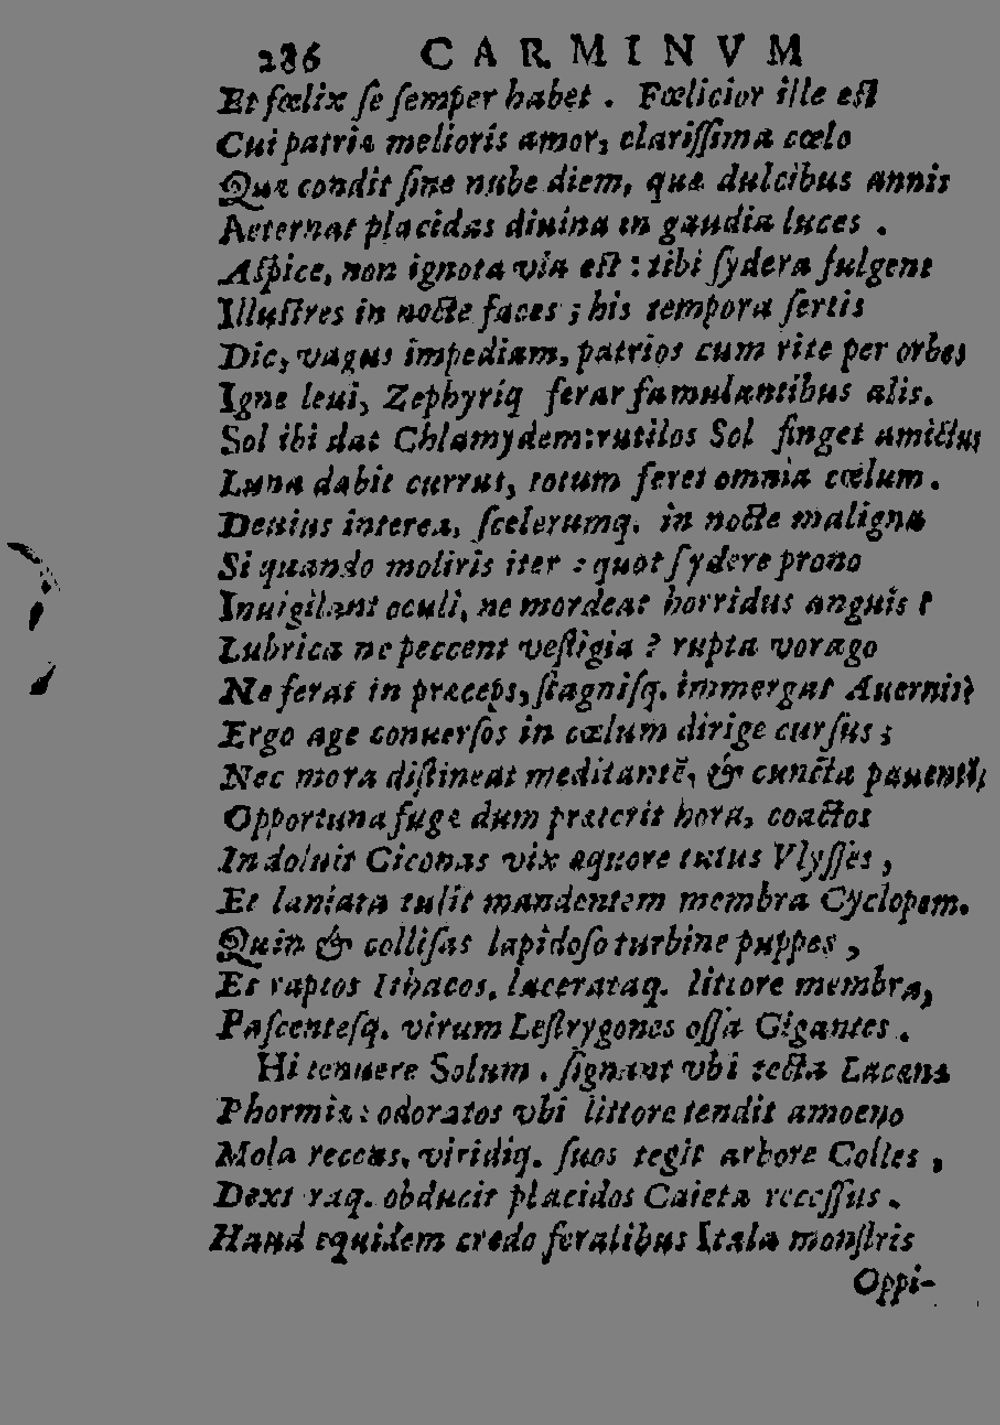 286 CARMINVM
Et fœlix ſe ſemper habet . Fœlicior ille eſt
Cui patriæ melioris amor, clariſſima cœlo
Quæ condit ſine nube diem, quæ dulcibus annis
Aeternat placidas diuina in gaudia luces .
Aſpice, non ignota via eſt : tibi ſydera fulgent
Illuſtres in nocte faces ; his tempora ſertis
Dic, vagus impediam, patrios cum rite per orbes
Igne leui, Zephyriq ferar famulantibus alis.
Sol ibi dat Chlamydem: rutilos Sol finget amictus
Luna dabit currus, totum feret omnia cœlum .
Deuius interea, ſcelerumq. in nocte maligna
Si quando moliris iter : quot ſydere prono
Inuigilant oculi, ne mordeat horridus anguis ?
Lubrica ne peccent veſtigia ? rupta vorago
Ne ferat in præceps, ſtagniſq. immergat Auernis?
Ergo age conuerſos in cœlum dirige curſus ;
Nec mora diſtineat meditantē, & cuncta pauentē,
Opportuna fugæ dum præterit hora, coactos
Indoluit Ciconas vix æquore tutus Vlyſſes ,
Et laniata tulit mandentem membra Cyclopem.
Quin & colliſas lapidoſo turbine puppes ,
Et raptos Ithacos, lacerataq. littore membra,
Paſcenteſq. virum Leſtrygones oſſa Gigantes .
Hi tenuere Solum . ſignant vbi tecta Lacæna
Phormiæ : odoratos vbi littore tendit amoeno
Mola recens, viridiq. ſuos tegit arbore Colles ,
Dextraq. obducit placidos Caieta receſſus .
Haud equidem credo feralibus Itala monſtris
Oppi-